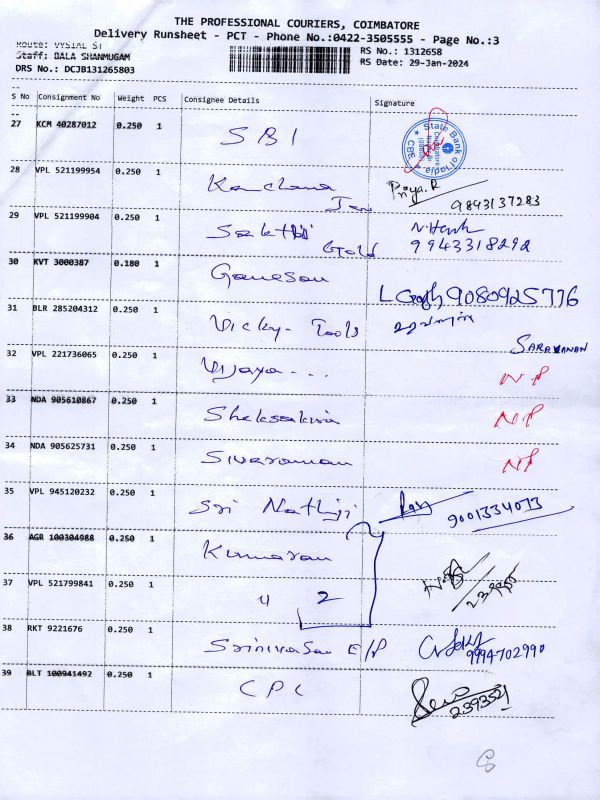 THE PROFESSIONAL COURIERS, COIMBATORE
Delivery Runsheet - PCT - Phone No.:0422-3505555 - Page No.:3
Route: VYSIAL ST
Staff: BALA SHANMUGAM
DRS No.: DCJB131265803
RS No.: 1312658
RS Date: 29-Jan-2024
S No Consignment No Weight PCS Consignee Details Signature
27 KCM 40287012 0.250 1 SBI State Bank of India CBE
28 VPL 521199954 0.250 1 Kanchana Priya.R
9843137283
29 VPL 521199904 0.250 1 Sakthi Gold
9943318292
30 KVT 3000387 0.180 1 Ganesan 9080925776
31 BLR 285204312 0.250 1 Vicky Tools
SARAVANAN
32 VPL 221736065 0.250 1 Vijaya... NP
33 NDA 905610867 0.250 1 NP
34 NDA 905625731 0.250 1 Sivaraman NP
35 VPL 945120232 0.250 1 Sri Nathji
9001334073
36 AGR 100304988 0.250 1 Kumaran
37 VPL 521799841 0.250 1 4 2
38 RKT 9221676 0.250 1 Srinivasa E/P
9994702990
39 BLT 100941492 0.250 1 CPC